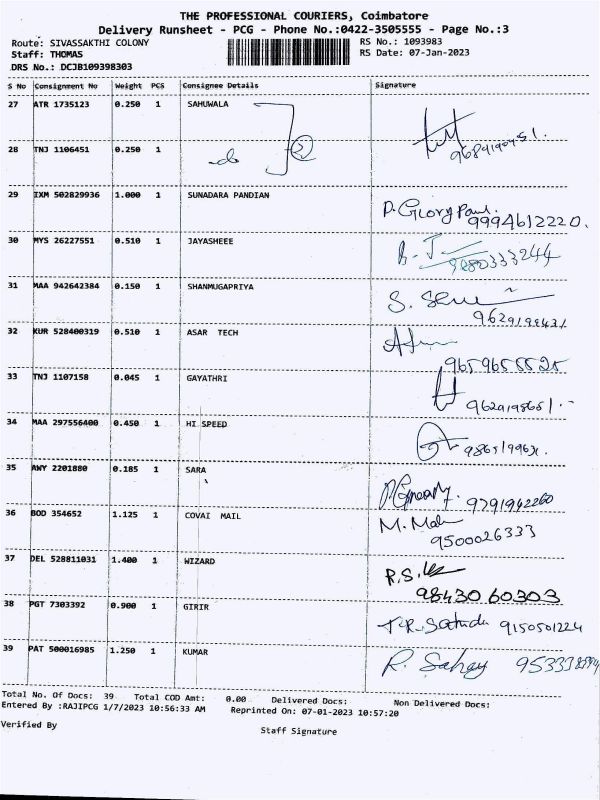 THE PROFESSIONAL COURIERS, Coimbatore
Delivery Runsheet - PCG - Phone No.:0422-3505555 - Page No.:3
Route: SIVASSAKTHI COLONY RS No.: 1093983
Staff: THOMAS RS Date: 07-Jan-2023
DRS No.: DCJB109398303
S No Consignment No Weight PCS Consignee Details Signature
27 ATR 1735123 0.250 1 SAHUWALA
28 TNJ 1106451 0.250 1 -do- 2
29 IXM 502829936 1.000 1 SUNADARA PANDIAN
9994612220.
30 MYS 26227551 0.510 1 JAYASHEEE
9880333244
31 MAA 942642384 0.150 1 SHANMUGAPRIYA
32 KUR 528400319 0.510 1 ASAR TECH
33 TNJ 1107158 0.045 1 GAYATHRI
34 MAA 297556400 0.450 1 HI SPEED
35 AWY 2201880 0.185 1 SARA
9791942260
36 BOD 354652 1.125 1 COVAI MAIL
9500026333
37 DEL 528811031 1.400 1 WIZARD
R.S.
9843060303
38 PGT 7303392 0.900 1 GIRIR
9150501224
39 PAT 500016985 1.250 1 KUMAR
R. Sahay
Total No. Of Docs: 39 Total COD Amt: 0.00 Delivered Docs: Non Delivered Docs:
Entered By :RAJIPCG 1/7/2023 10:56:33 AM Reprinted On: 07-01-2023 10:57:20
Verified By Staff Signature